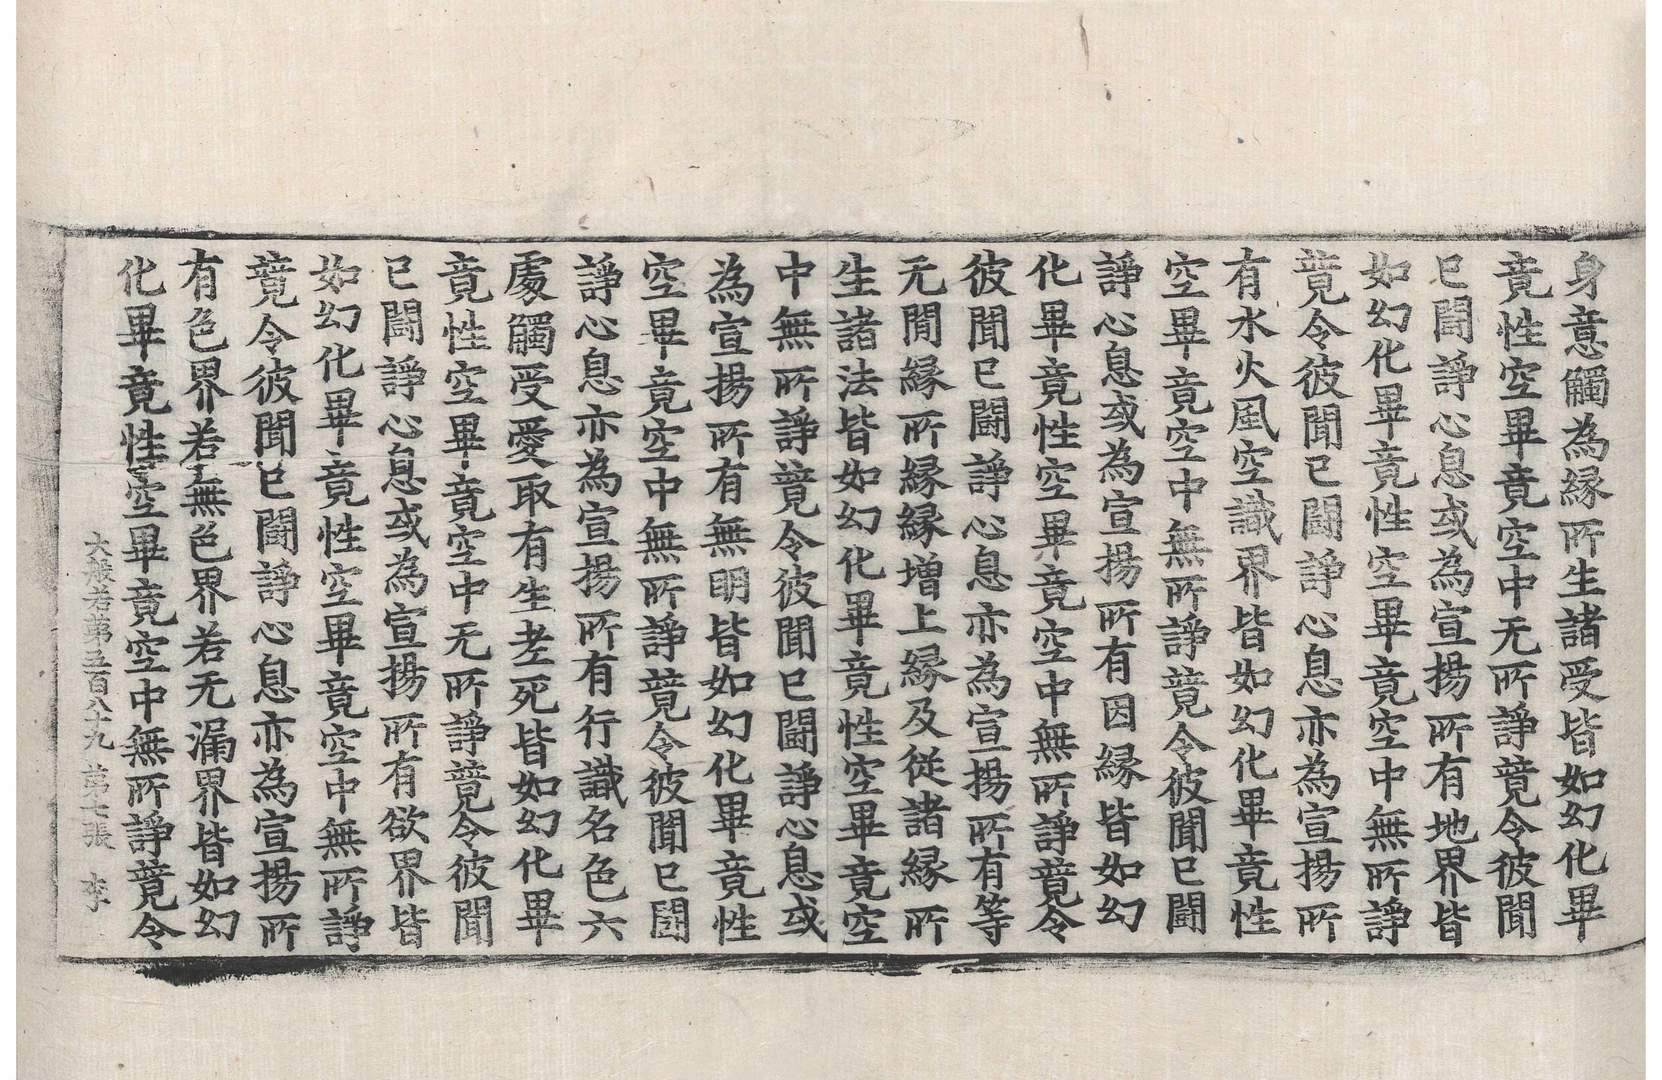 身意觸為縁所生諸受皆如幻化畢
竟性空畢竟空中无所諍競令彼聞
已鬪諍心息或為宣揚所有地界皆
如幻化畢竟性空畢竟空中無所諍
競令彼聞已鬪諍心息亦為宣揚所
有水火風空識界皆如幻化畢竟性
空畢竟空中無所諍競令彼聞已鬪
諍心息或為宣揚所有因縁皆如幻
化畢竟性空畢竟空中無所諍競令
彼聞已鬪諍心息亦為宣揚所有等
无間縁所縁縁增上縁及從諸縁所
生諸法皆如幻化畢竟性空畢竟空
中無所諍競令彼聞已鬪諍心息或
為宣揚所有無明皆如幻化畢竟性
空畢竟空中無所諍競令彼聞已鬪
諍心息亦為宣揚所有行識名色六
處觸受愛取有生老死皆如幻化畢
竟性空畢竟空中无所諍競令彼聞
已鬪諍心息或為宣揚所有欲界皆
如幻化畢竟性空畢竟空中無所諍
競令彼聞已鬪諍心息亦為宣揚所
有色界若無色界若无漏界皆如幻
化畢竟性空畢竟空中無所諍競令
大般若第五百八十九 第七張 李